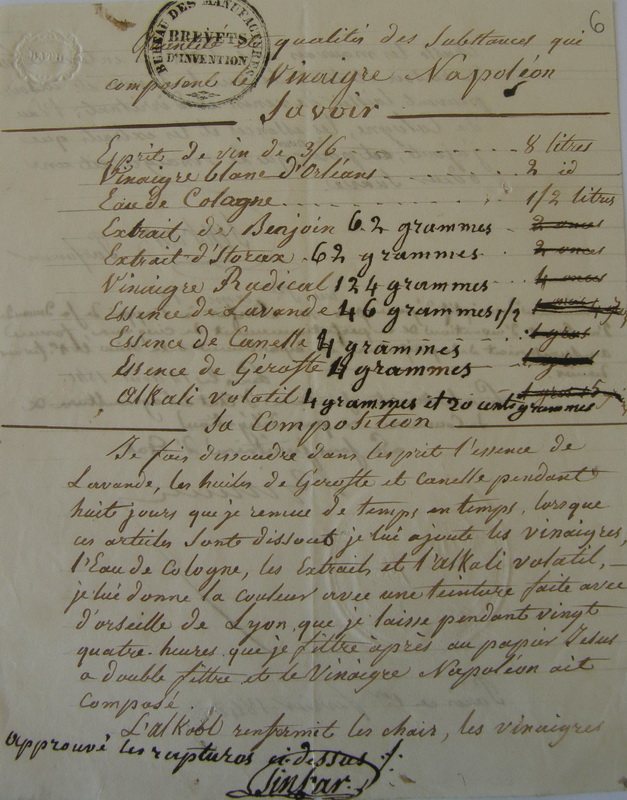 6
BUREAU DES MANUFACTURES
BREVETS
D'INVENTION
qualités des Substances qui
composent le Vinaigre Napoléon
Savoir
Esprit de vin de 3/6 8 litres
Vinaigre blanc D'Orléans 2 id
Eau de Cologne 1/2 litres
Extrait de Benjoin 62 grammes 2 onces
Extrait d'Storax 62 grammes 2 onces
Vinaigre Radical 124 grammes 4 onces
Essence de Lavande 46 grammes 1/2
Essence de Canelle 4 grammes 1 gros
Essence de Gérofle 4 grammes 1 gros
alkali volatil 4 grammes et 20 centigrammes
Sa Composition
Je fais dissoudre dans l'esprit l'essence de
Lavande, les huiles de Gérofle et Canelle pendant
huit jours que je remue de temps en temps, lorsque
ces articles sont dissout je lui ajoute les vinaigres,
l'Eau de Cologne, les Extraits et l'alkali volatil, —
je lui donne la couleur avec une teinture faite avec
d'orseille de Lyon que je laisse pendant vingt
quatre heures, que je filtre après au papier Jesus
a double filtre et le Vinaigre Napoléon ait
composé.
L'alkool renfermit les chair, les vinaigres
approuvé les ruptures ci-dessus